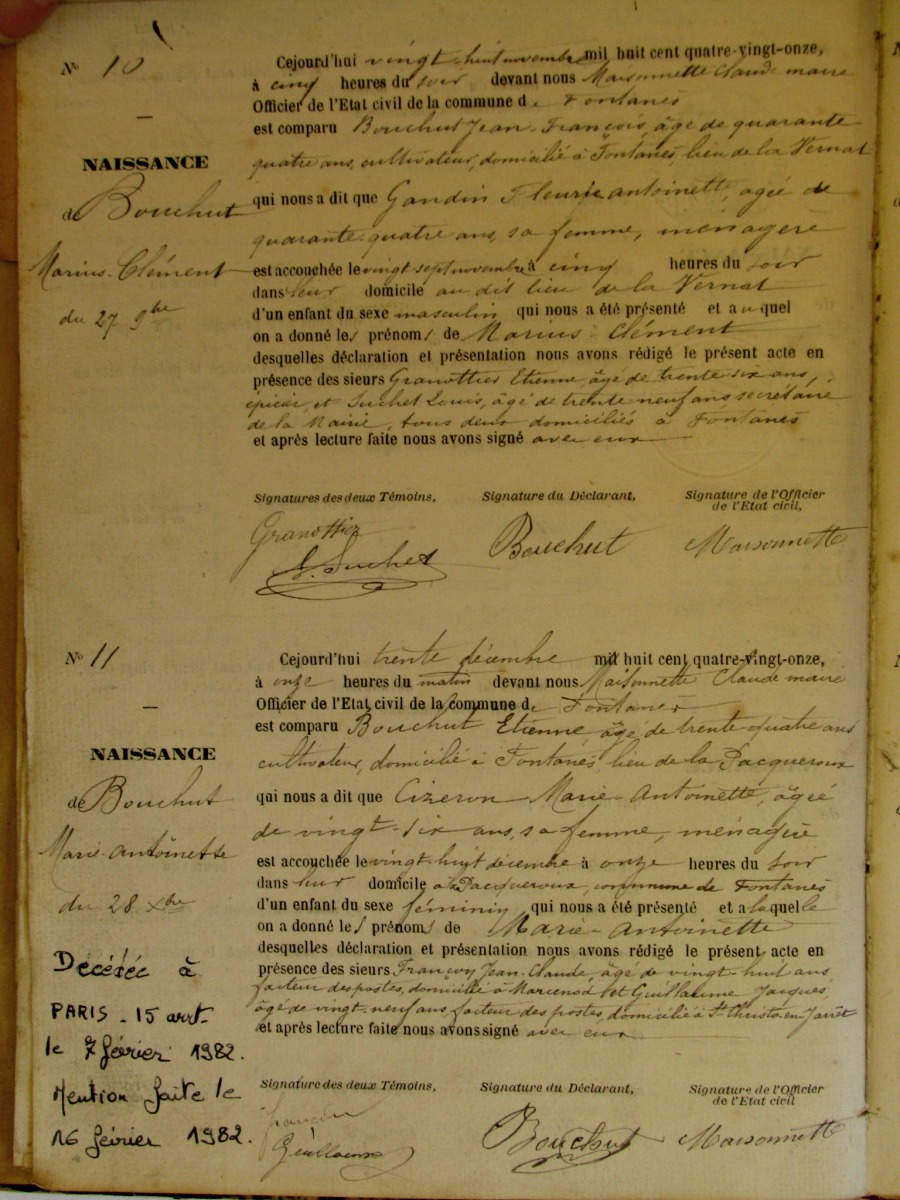 N° 10
NAISSANCE
de Bouchut
Marius-Clément
du 27 9bre
Cejourd'hui vingt-huit novembre mil huit cent quatre-vingt-onze,
à cinq heures du soir devant nous Maisonnette Claude maire
Officier de l'Etat civil de la commune de Fontanès
est comparu Bouchut Jean-François, âgé de quarante
quatre ans, cultivateur, domicilié à Fontanès lieu de la Vernat
qui nous a dit que Gandin Fleurie antoinette, agée de
quarante-quatre ans, sa femme, ménagère
est accouchée le vingt sept novembre à cinq heures du soir
dans leur domicile au dit lieu de la Vernat
d'un enfant du sexe masculin qui nous a été présenté et auquel
on a donné les prénoms de Marius-Clément
desquelles déclaration et présentation nous avons rédigé le présent acte en
présence des sieurs Granottier Etienne, âgé de trente-six ans,
épicier, et Suchet Louis, âgé de trente neuf ans, secrétaire
de la Mairie, tous deux domiciliés à Fontanès
et après lecture faite nous avons signé avec eux
Signatures des deux Témoins, Signature du Déclarant, Signature de l'Officier
de l'Etat civil,
Granottier Bouchut Maisonnette
L. Suchet
N° 11
NAISSANCE
de Bouchut
Marie-antoinette
du 28 Xbre
Décédée à
PARIS - 15 arrt.
le 7 février 1982.
Mention faite le
16 février 1982.
Cejourd'hui trente décembre mil huit cent quatre-vingt-onze,
à onze heures du matin devant nous Maisonnette Claude maire
Officier de l'Etat civil de la commune de Fontanès
est comparu Bouchut Etienne âgé de trente-quatre ans
cultivateur, domicilié à Fontanès lieu de la Pacqueroux
qui nous a dit que Cizeron Marie-Antoinette, âgée
de vingt-six ans, sa femme, ménagère
est accouchée le vingt-huit décembre à onze heures du soir
dans leur domicile à la Pacqueroux, commune de Fontanès
d'un enfant du sexe féminin qui nous a été présenté et a laquelle
on a donné les prénoms de Marie-Antoinette
desquelles déclaration et présentation nous avons rédigé le présent acte en
présence des sieurs Françon Jean-Claude, âgé de vingt-huit ans
facteur des postes, domicilié à Marenod et Guillaume Jacques
âgé de vingt-neuf ans facteur des postes domicilié à St-Christo-en-Jarrêt
et après lecture faite nous avons signé avec eux
Signature des deux Témoins, Signature du Déclarant, Signature de l'Officier
de l'Etat civil
Françon Bouchut Maisonnette
Guillaume